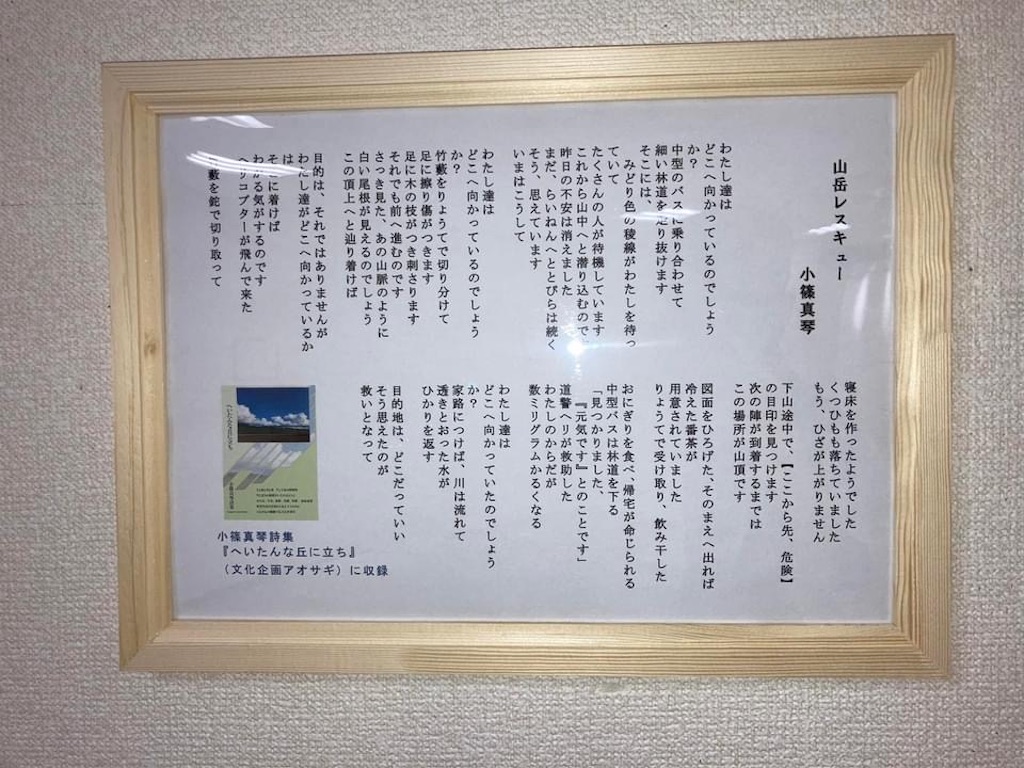 山岳レスキュー
小篠真琴
わたし達は
どこへ向かっているのでしょう
か？
中型のバスに乗り合わせて
細い林道を走り抜けます
そこには、
みどり色の稜線がわたしを待っ
ていて
たくさんの人が待機しています
これから山中へと潜り込むので
昨日の不安は消えました
まだ、らいねんへととびらは続く
そう、思えています
いまはこうして
わたし達は
どこへ向かっているのでしょう
か？
竹藪をりょうてで切り分けて
足に擦り傷がつきます
足に木の枝がつき刺さります
それでも前へ進むのです
さっき見た、あの山脈のように
白い尾根が見えるのでしょう
この頂上へと辿り着けば
目的は、それではありませんが
わたし達がどこへ向かっているか
は
そこに着けば
わかる気がするのです
ヘリコプターが飛んで来た
藪を鉈で切り取って
寝床を作ったようでした
くつひもも落ちていました
もう、ひざが上がりません
下山途中で、【ここから先、危険】
の目印を見つけます
次の陣が到着するまでは
この場所が山頂です
図面をひろげた、そのまえへ出れば
冷えた番茶が
用意されていました
りょうてで受け取り、飲み干した
おにぎりを食べ、帰宅が命じられる
中型バスは林道を下る
「見つかりました、
『元気です』とのことです」
道警ヘリが救助した
わたしのからだが
数ミリグラムかるくなる
わたし達は
どこへ向かっていたのでしょう
か？
家路につけば、川は流れて
透きとおった水が
ひかりを返す
目的地は、どこだっていい
そう思えたのが
救いとなって
へいたんな丘に立ち
小篠真琴詩集
小篠真琴詩集
『へいたんな丘に立ち』
（文化企画アオサギ）に収録